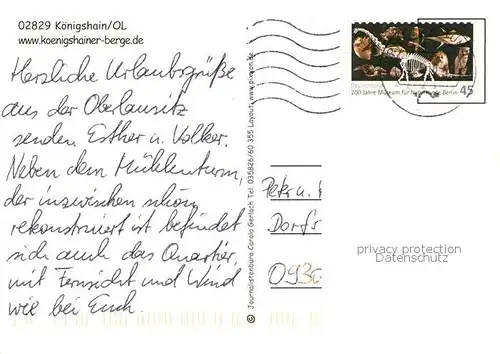 02829 Königshain/OL
www.koenigshainer-berge.de
Herzliche Urlaubsgrüße
aus der Oberlausitz
senden Esther u. Volker.
Neben dem Mühlenturm,
der inzwischen schön
rekonstruiert ist befindet
sich auch das Quartier,
mit Fernsicht und Wind
wie bei Euch.
© Journalistenbüro Carola Gerlach Tel. 035826/60 355 Layout: www.piopan.de
200 Jahre Museum für Naturkunde Berlin
45
Peter u.
Dorfs
093
privacy protection
Datenschutz